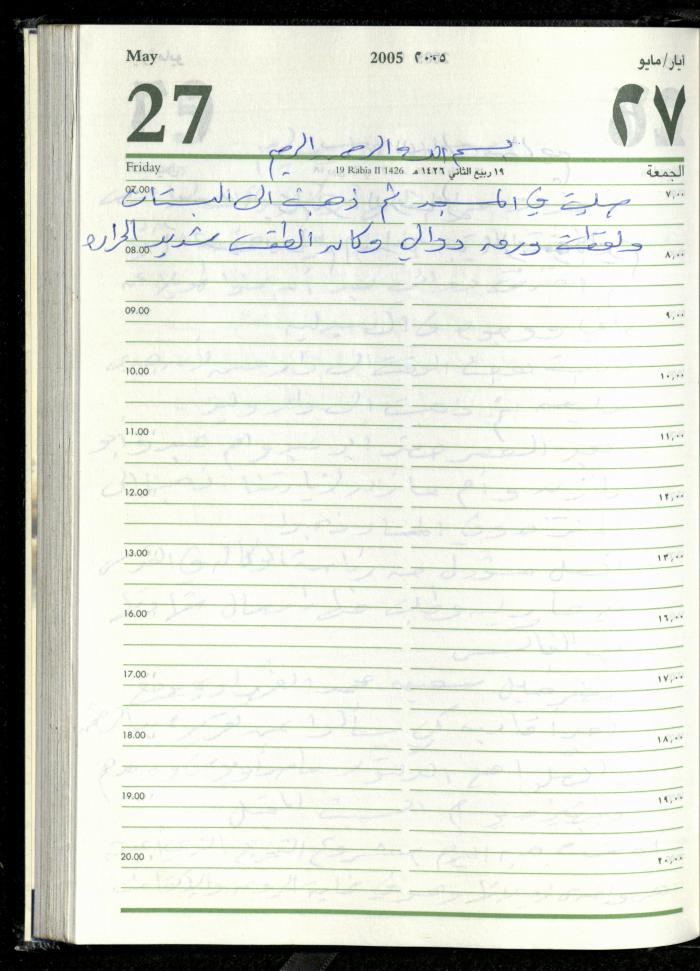 May 2005 ٢٠٠٥ أيار/مايو
27 ٢٧
بسم الله الرحمن الرحيم
Friday 19 Rabia II 1426 ١٩ ربيع الثاني ١٤٢٦ هـ الجمعة
07.00 ٧,٠٠
صليت في المسجد ثم ذهبت الى البستان
ولقطت ورق دوالي وكان الطقس شديد الحرارة
08.00 ٨,٠٠
09.00 ٩,٠٠
10.00 ١٠,٠٠
11.00 ١١,٠٠
12.00 ١٢,٠٠
13.00 ١٣,٠٠
16.00 ١٦,٠٠
17.00 ١٧,٠٠
18.00 ١٨,٠٠
19.00 ١٩,٠٠
20.00 ٢٠,٠٠